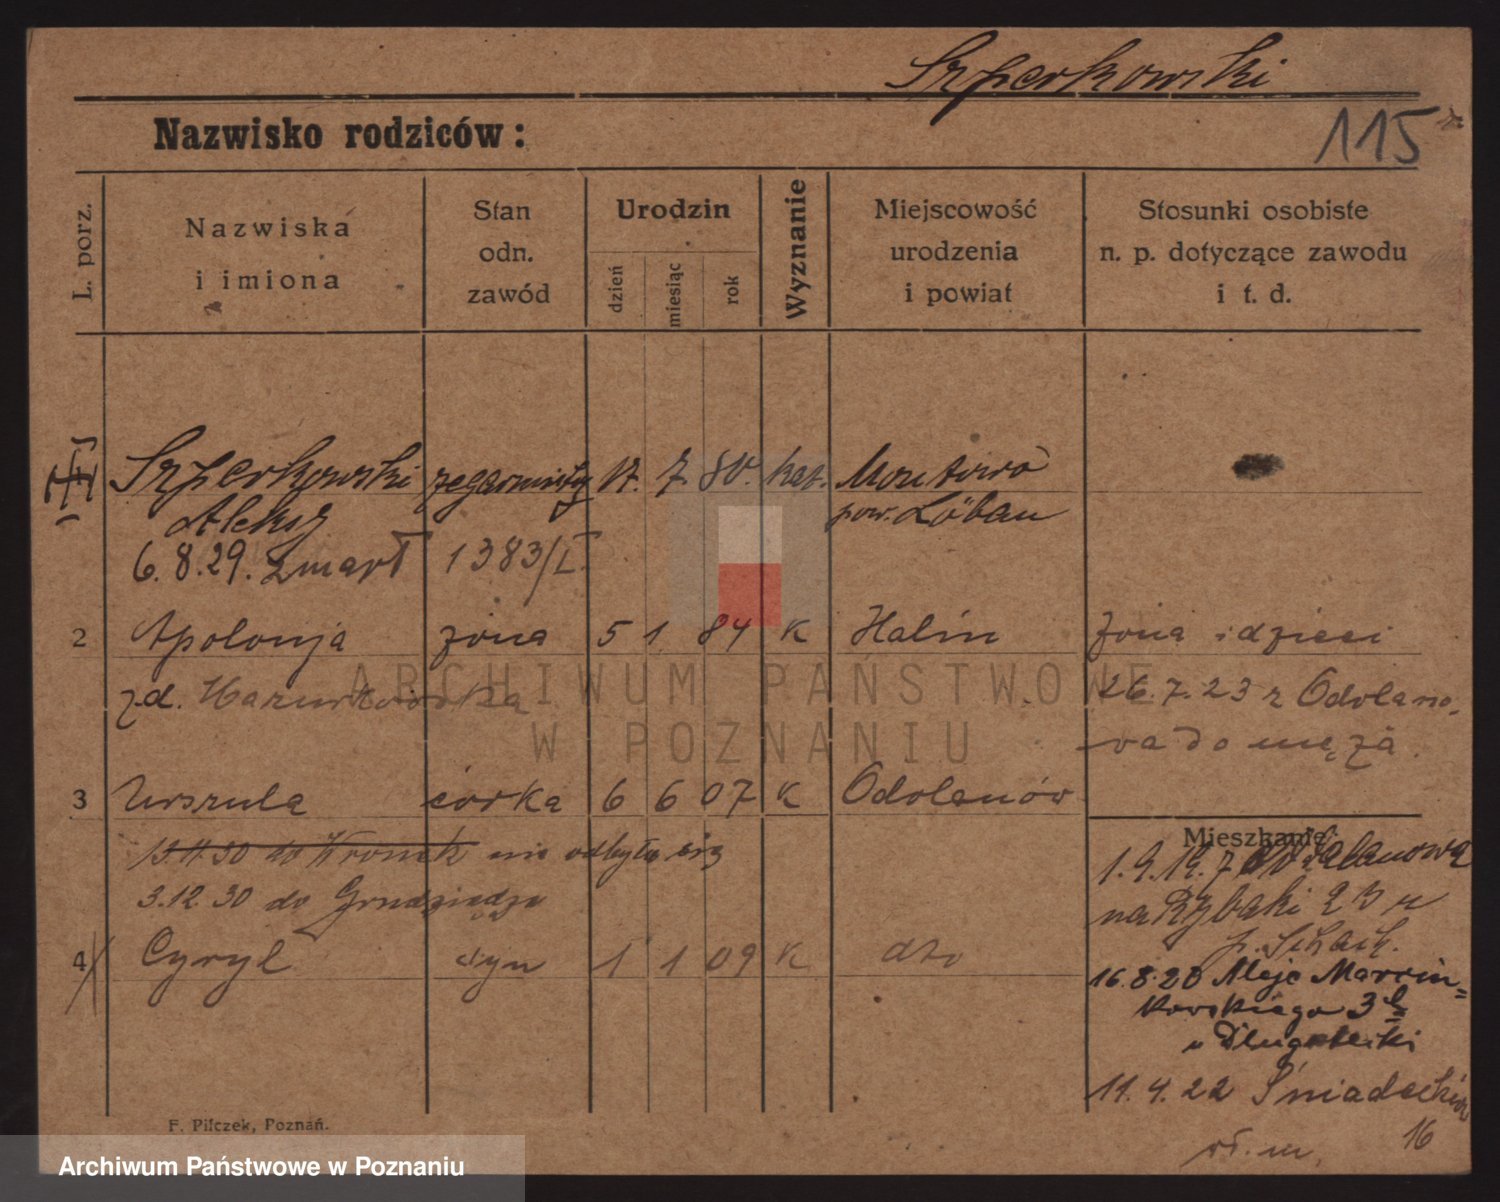 Szperkowski
Nazwisko rodziców:
115
L. porz.
Nazwiska
i imiona
Stan
odn.
zawód
Urodzin
dzień
miesiąc
rok
Wyznanie
Miejscowość
urodzenia
i powiat
Stosunki osobiste
n. p. dotyczące zawodu
i t. d.
Szperkowski zegarmistrz 17. 7. 80. kat. Montowo
Aleksy pow. Löbau
6.8.29. zmarł 1383/I.
2 Apolonja żona 5 1 84 K Halin żona i dzieci
z d. Mazurkowska 26.7.23 z Odolano-
wa do męża.
3 Urszula córka 6 6 07 K Odolanów
13.11.30 do Kronik nie odbyło się
3.12.30 do Grudziądza
4 Cyryl syn 1 1 09 K dto
Mieszkanie:
1.9.19. z Odolanowa
na Rybaki 23 u
p. Schach.
16.8.20 Aleje Marcin=
kowskiego 3b
u Długołęcki
11.4.22 Śniadeckich
16
wł. m.
F. Pilczek, Poznań.
ARCHIWUM PAŃSTWOWE
W POZNANIU
Archiwum Państwowe w Poznaniu